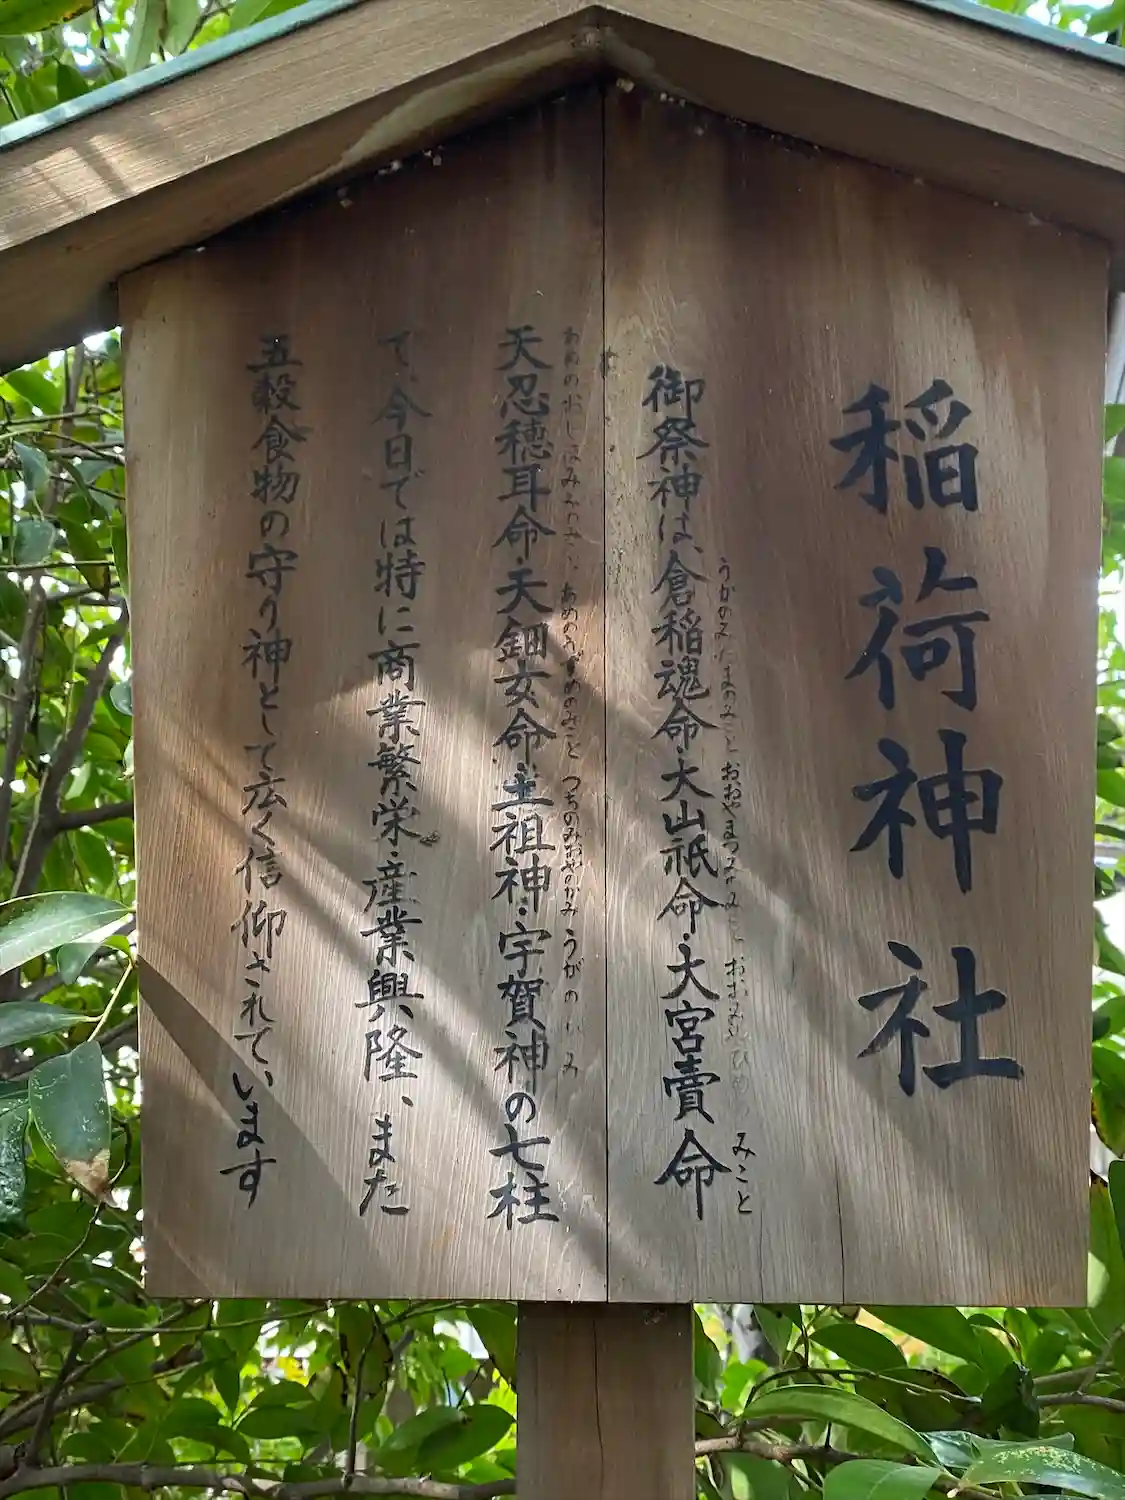 稲荷神社
御祭神は、倉稲魂命・大山祇命・大宮賣命
うかのみたまのみこと おおやまつみのみこと おおみやひめの みこと
天忍穂耳命・天鈿女命・主祖神・宇賀神の七柱
あめのおしほみみのみこと あめのうずめのみこと つちのみおやのかみ うがのかみ
て、今日では特に商業繁栄・産業興隆、また
五穀食物の守り神として広く信仰されています